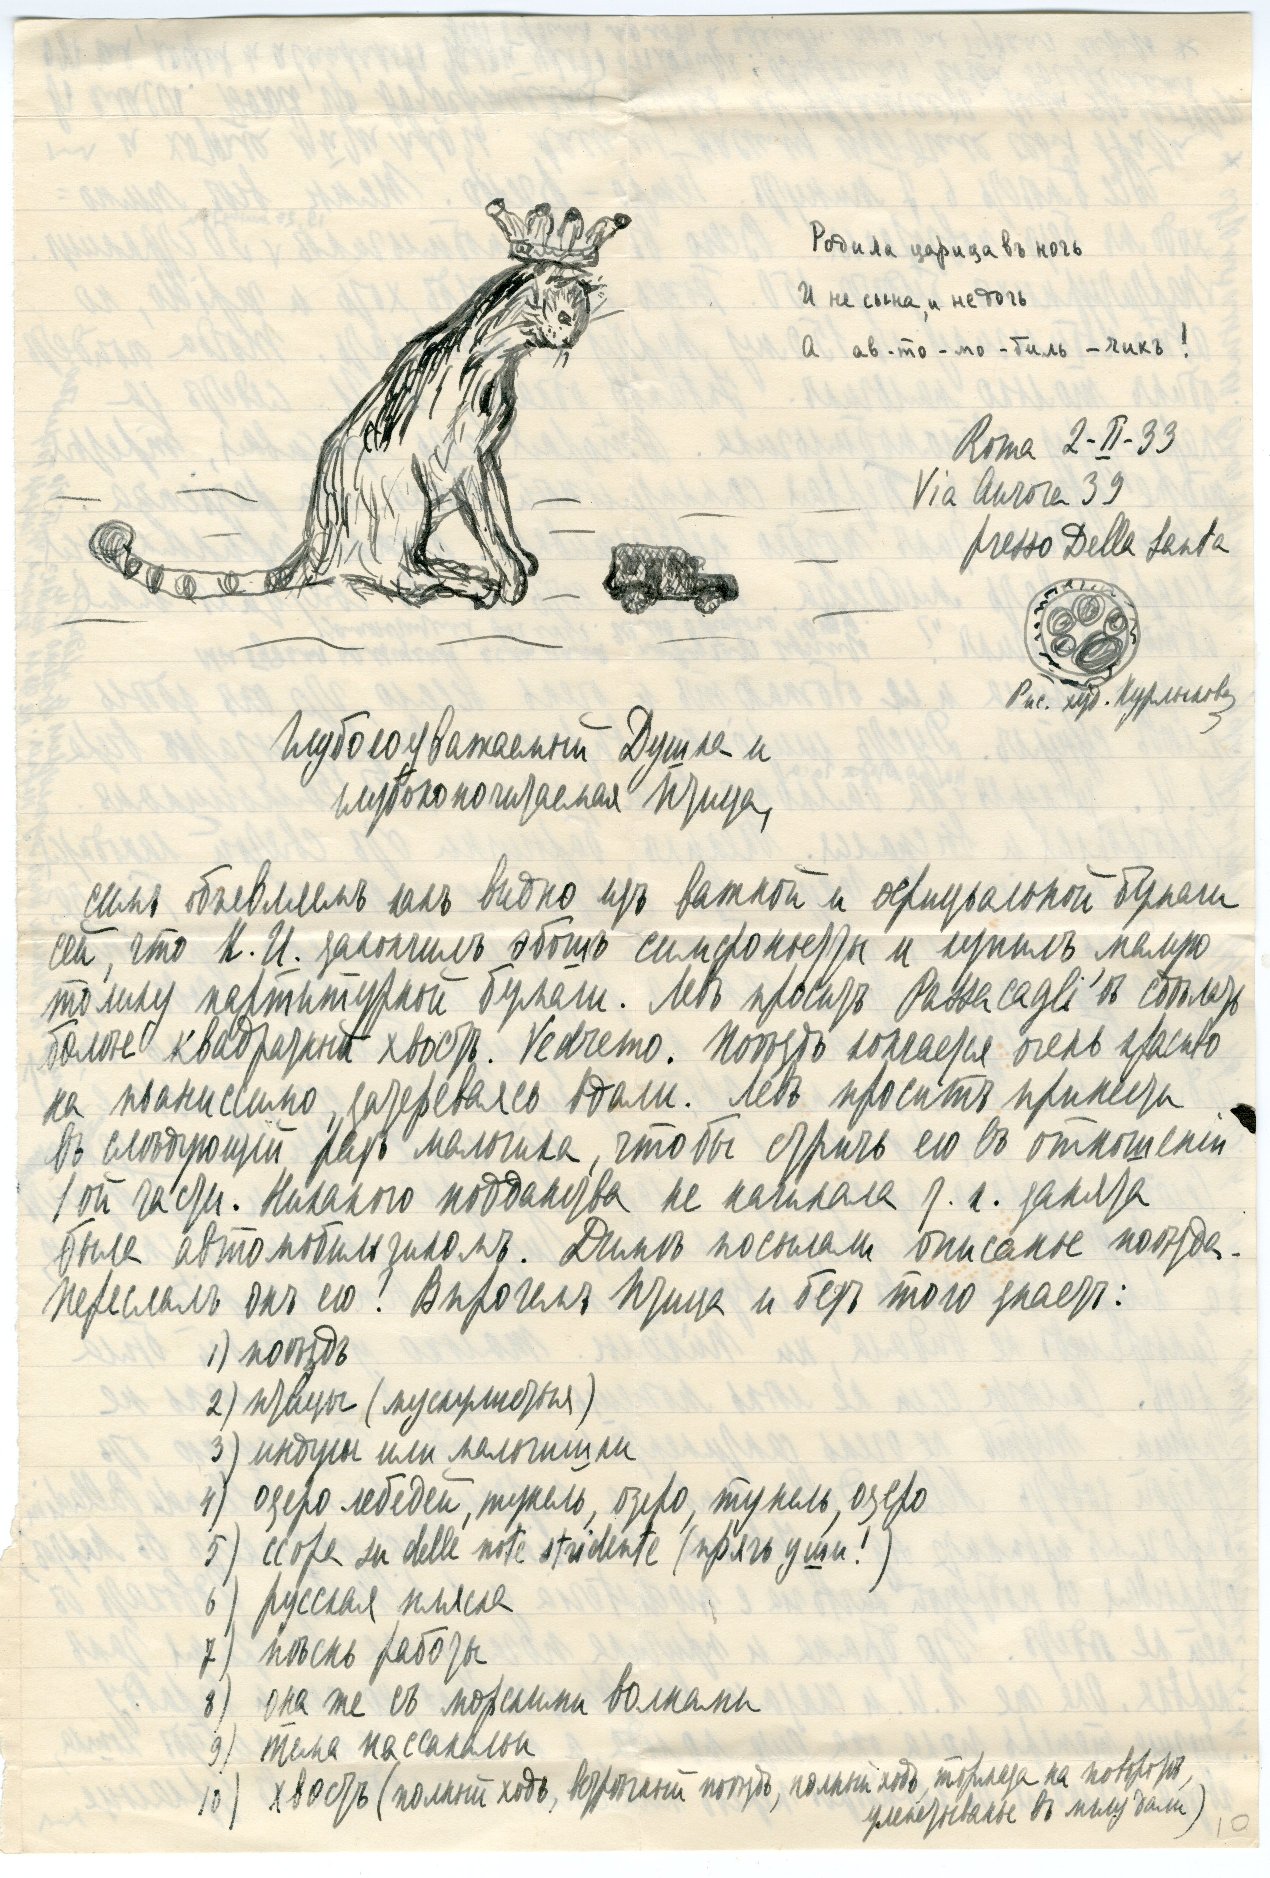 Родила царица въ ночь
И не сына, и не дочь
А ав-то-мо-биль-чикъ!
Roma 2-II-33
Via Aurora 39
presso Della Santa
Рис. худ. Мурлыкова
Глубокоуважаемый Душка и
глубокопочитаемая Птица,
симъ объевляемъ какъ видно изъ важной и офицьальной бумаги
сей, что К. И. закончилъ эбошъ симфоньеты и купилъ малую
толику партитурной бумаги. Левъ проситъ Passacagli'ъ сбылать
более квадратный хвостъ. Vedremo. Поѣздъ кончается очень красиво
на пьаниссимо, затереваясь вдали. Левъ проситъ принести
въ слѣдующій разъ мальчика, чтобы стричь его въ отношеніи
1ой части. Никакого подданства не начинала т. к. занята
была автомобильчикомъ. Димѣ посылали описанье поѣзда.
Переслалъ онъ его! Впрочемъ Птица и безъ того знаетъ:
1) поѣздъ
2) птицы (
3) индусы или мальчишки
4) озеро лебедей, тунель, озеро, тунель, озеро
5) ссора su delle note stridente (прячь уши!)
6) русская пляска
7) пѣснь работы
8) она же съ морскими волнами
9) тема пассакальи
10) хвостъ (полный ходъ, встрѣчный поѣздъ, полный ходъ, торпеда на поворотъ,
улепетыванье въ мглу дали)
10